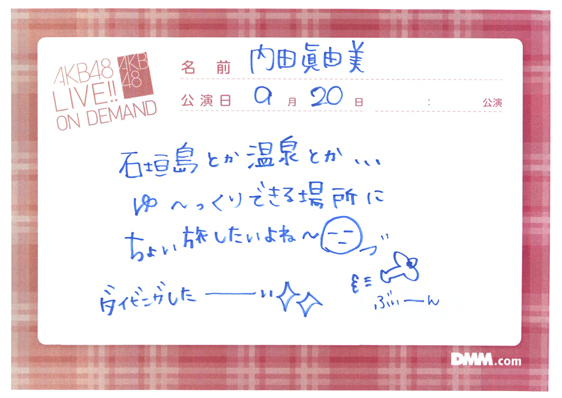 AKB48
LIVE!!
ON DEMAND
AKB
48
名前 内田眞由美
公演日 9月20日 : 公演
石垣島とか温泉とか、、、
ゆ〜っくりできる場所に
ちょい旅したいよね〜
ダイビングした――――い
ぶぃーん
DMM.com